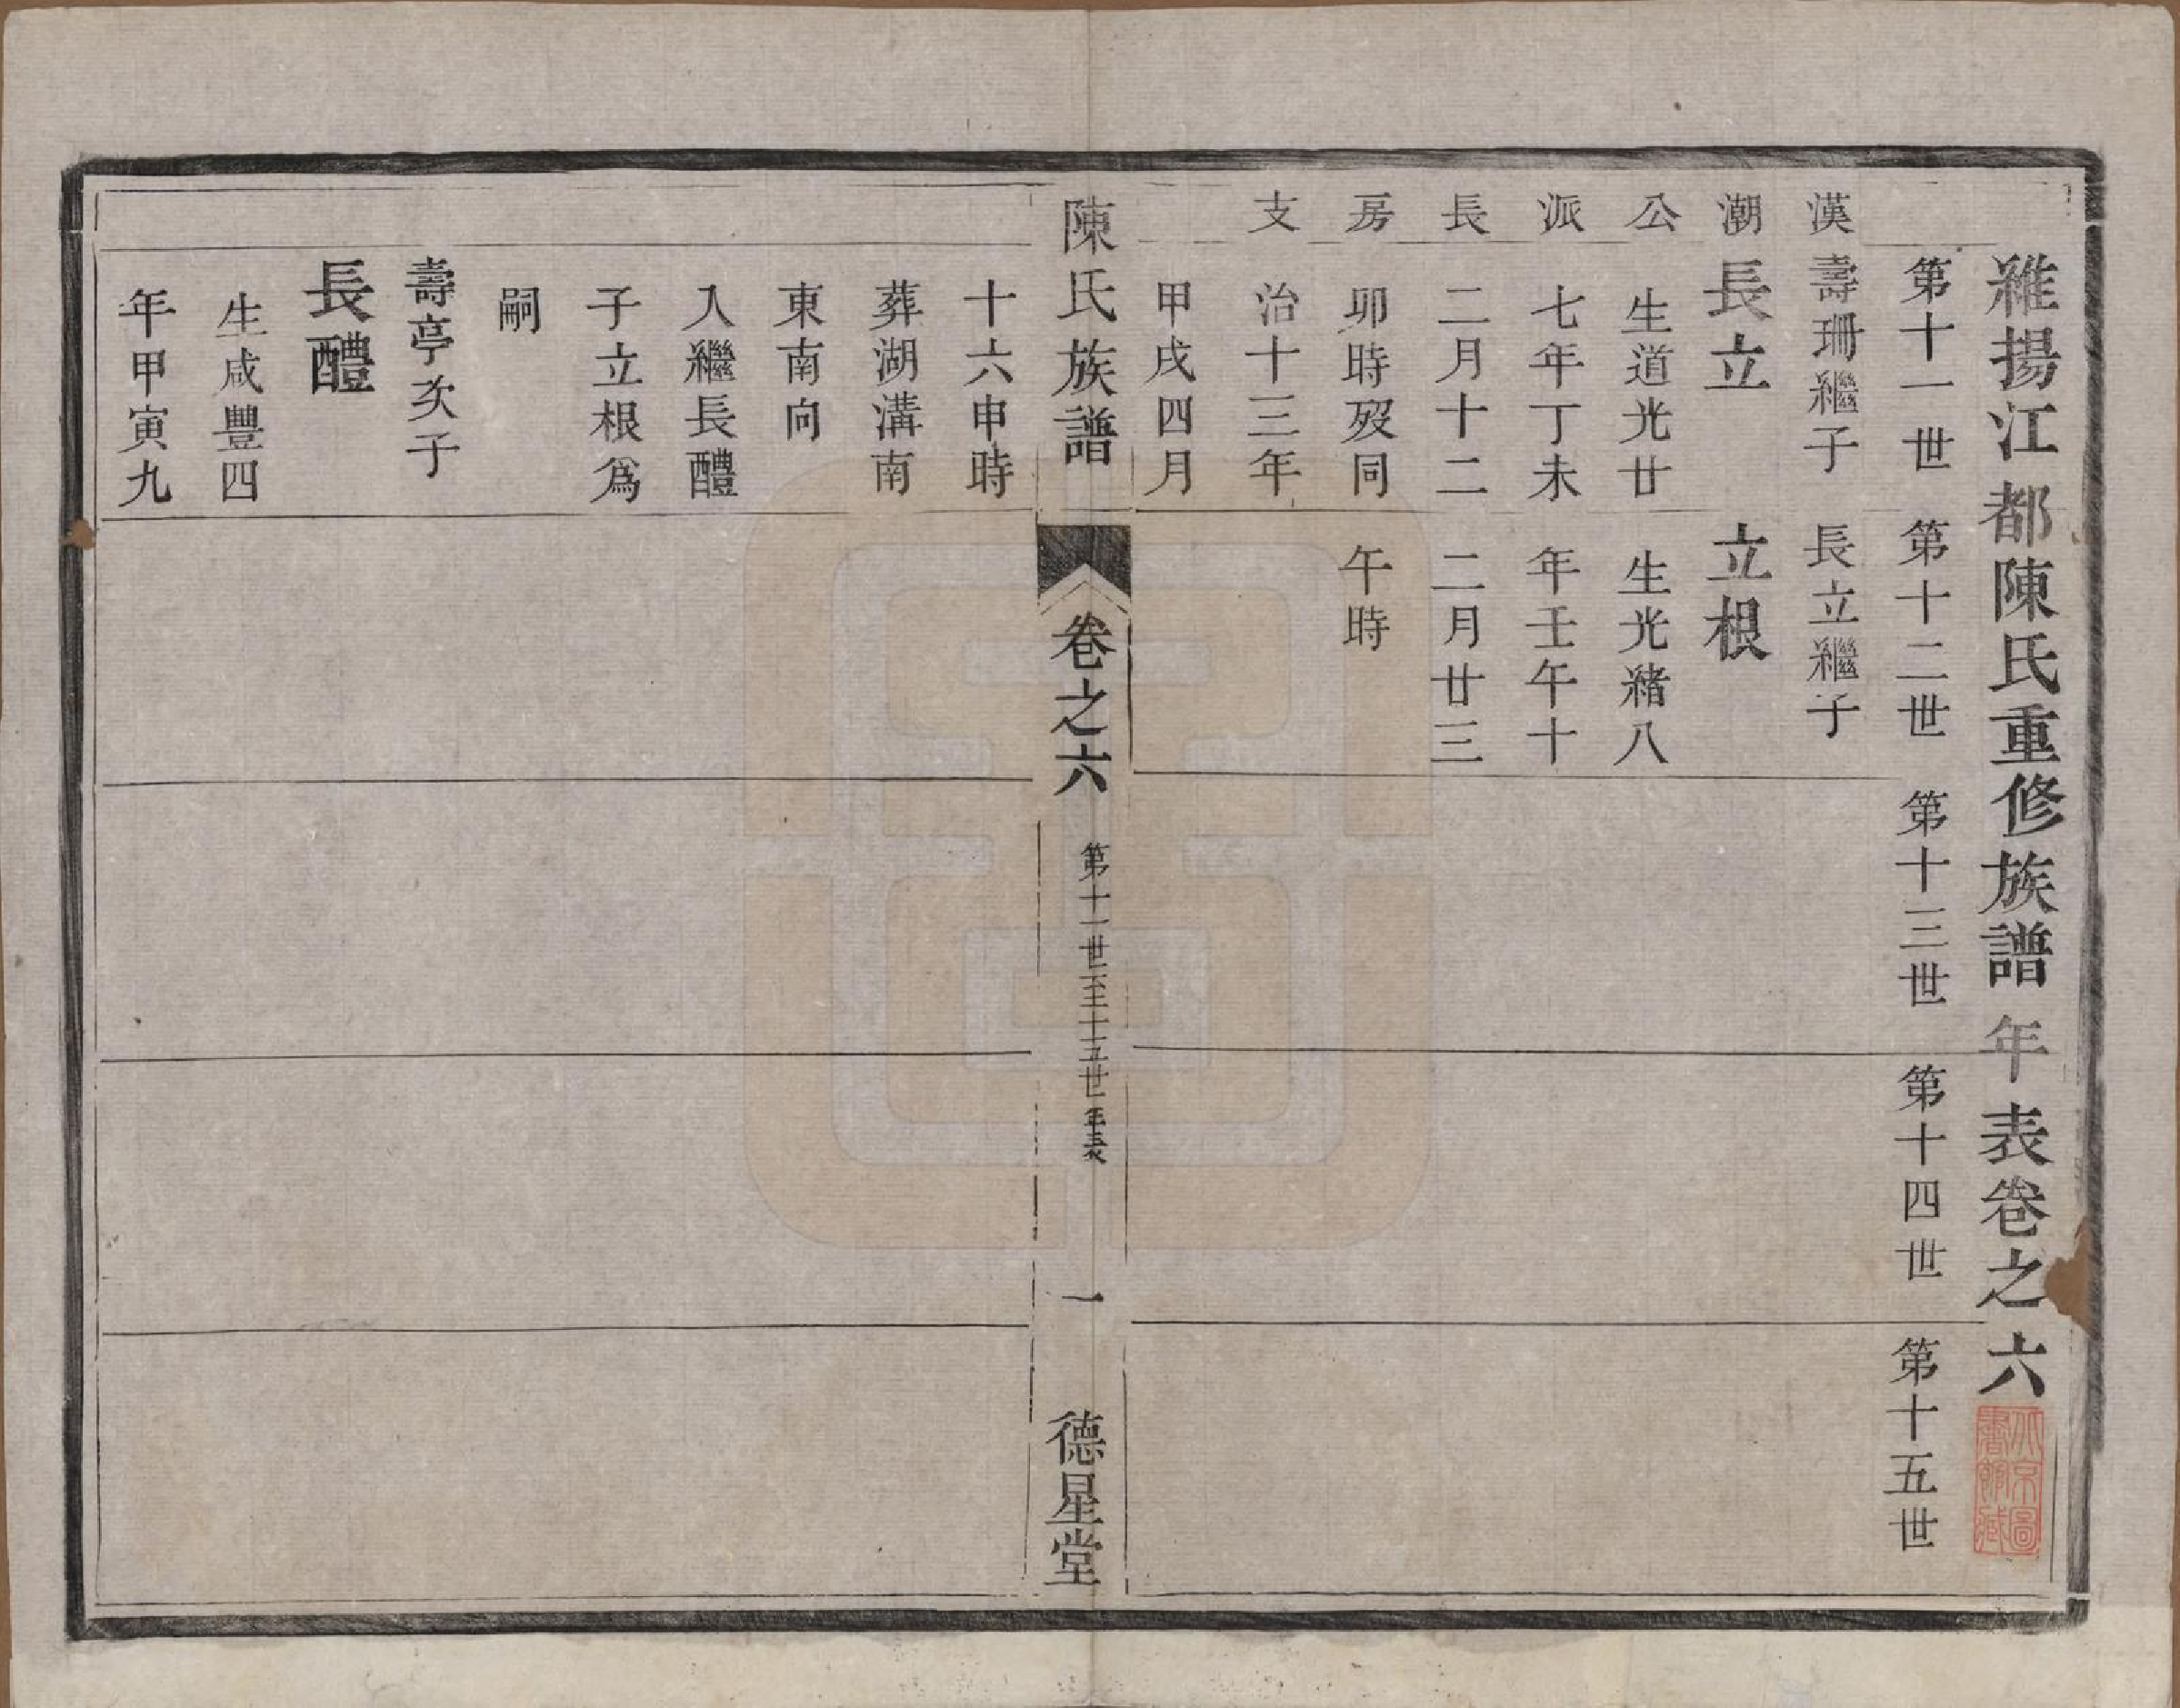 維揚江都陳氏重修族譜年表卷之六
第十一世
第十二世
第十三世
第十四世
第十五世
漢潮公派長房支
壽珊繼子
長立
生道光廿
七年丁未
二月十二
卯時歿同
治十三年
甲戌四月
長立繼子
立根
生光緒八
年壬午十
二月廿三
午時
陳氏族譜
卷之六
第十一世至十五世年表
一
德星堂
十六申時
葬湖溝南
東南向
入繼長醴
子立根爲
嗣
壽亭次子
長醴
生咸豐四
年甲寅九